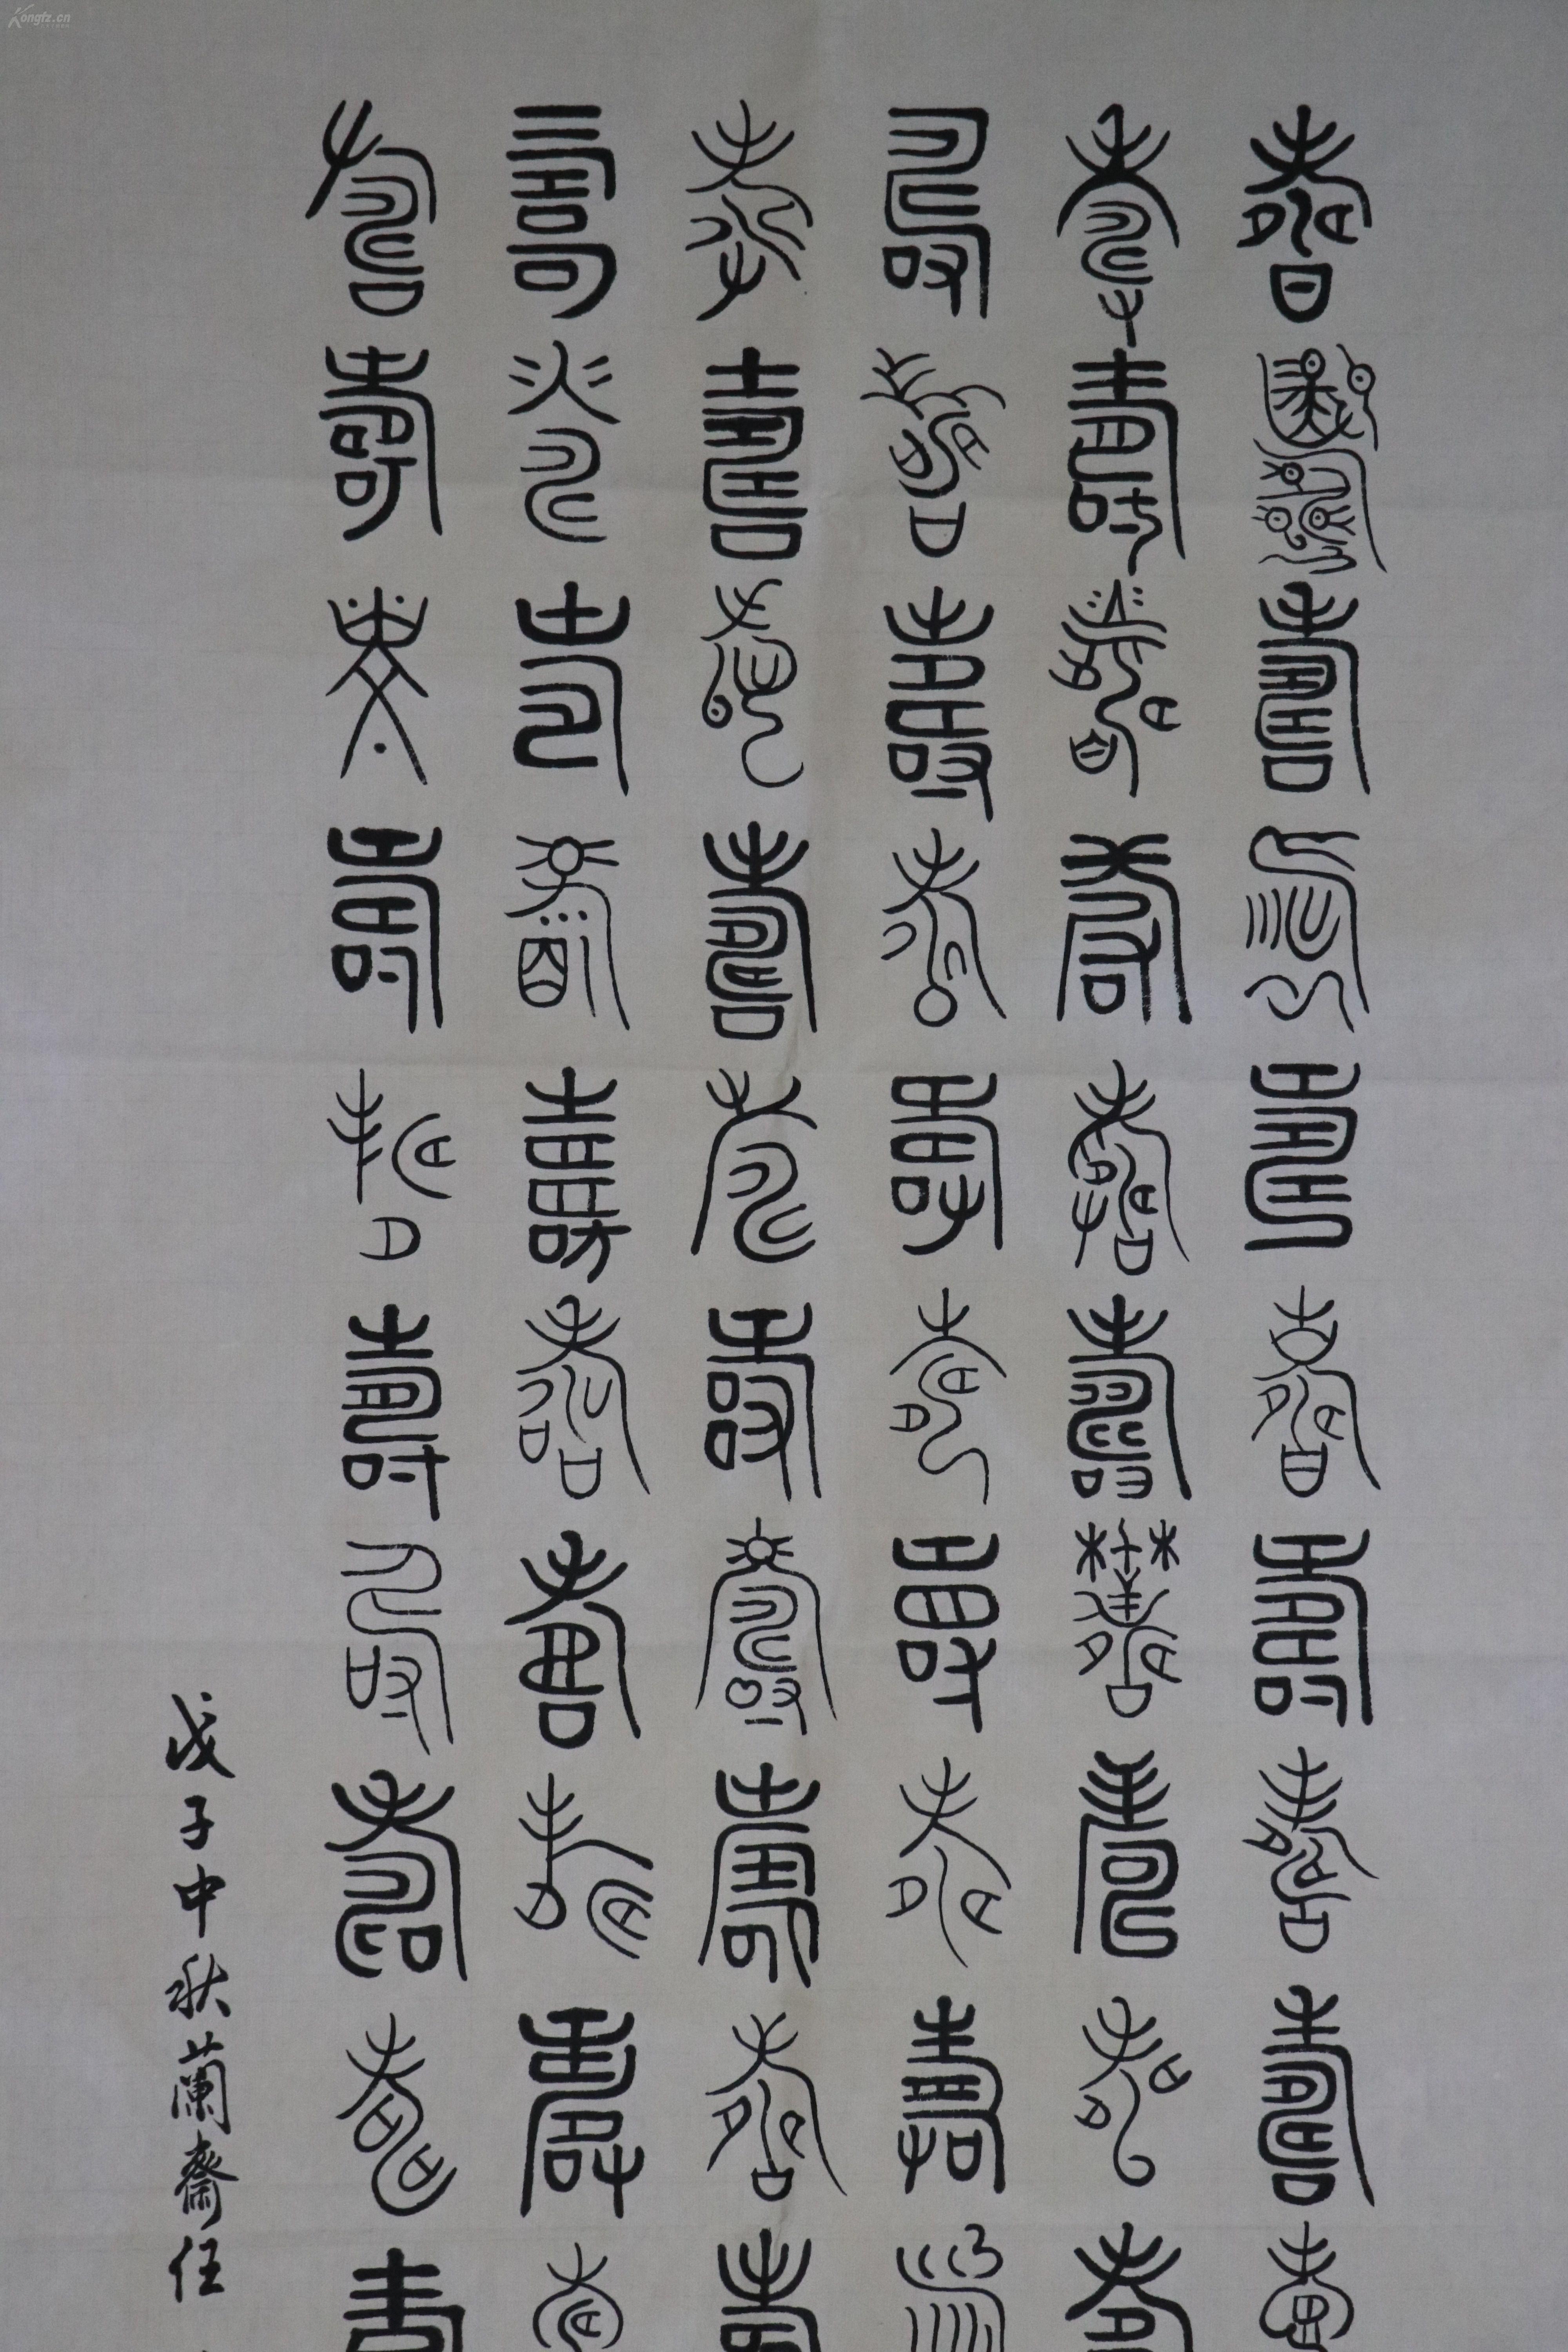 壽壽壽壽壽壽壽壽壽壽
壽壽壽壽壽壽壽壽壽壽
壽壽壽壽壽壽壽壽壽壽
壽壽壽壽壽壽壽壽壽壽
壽壽壽壽壽壽壽壽壽壽
壽壽壽壽壽壽壽壽壽壽
戊子中秋蘭齋任
Kongfz.cn